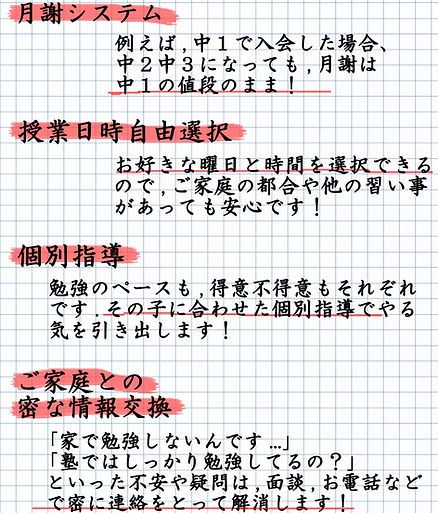 月謝システム
例えば,中１で入会した場合、
中２中３になっても,月謝は
中１の値段のまま！
授業日時自由選択
お好きな曜日と時間を選択できる
ので,ご家庭の都合や他の習い事
があっても安心です！
個別指導
勉強のペースも,得意不得意もそれぞれ
です.その子に合わせた個別指導でやる
気を引き出します！
ご家庭との
密な情報交換
「家で勉強しないんです…」
「塾ではしっかり勉強してるの？」
といった不安や疑問は,面談,お電話など
で密に連絡をとって解消します！